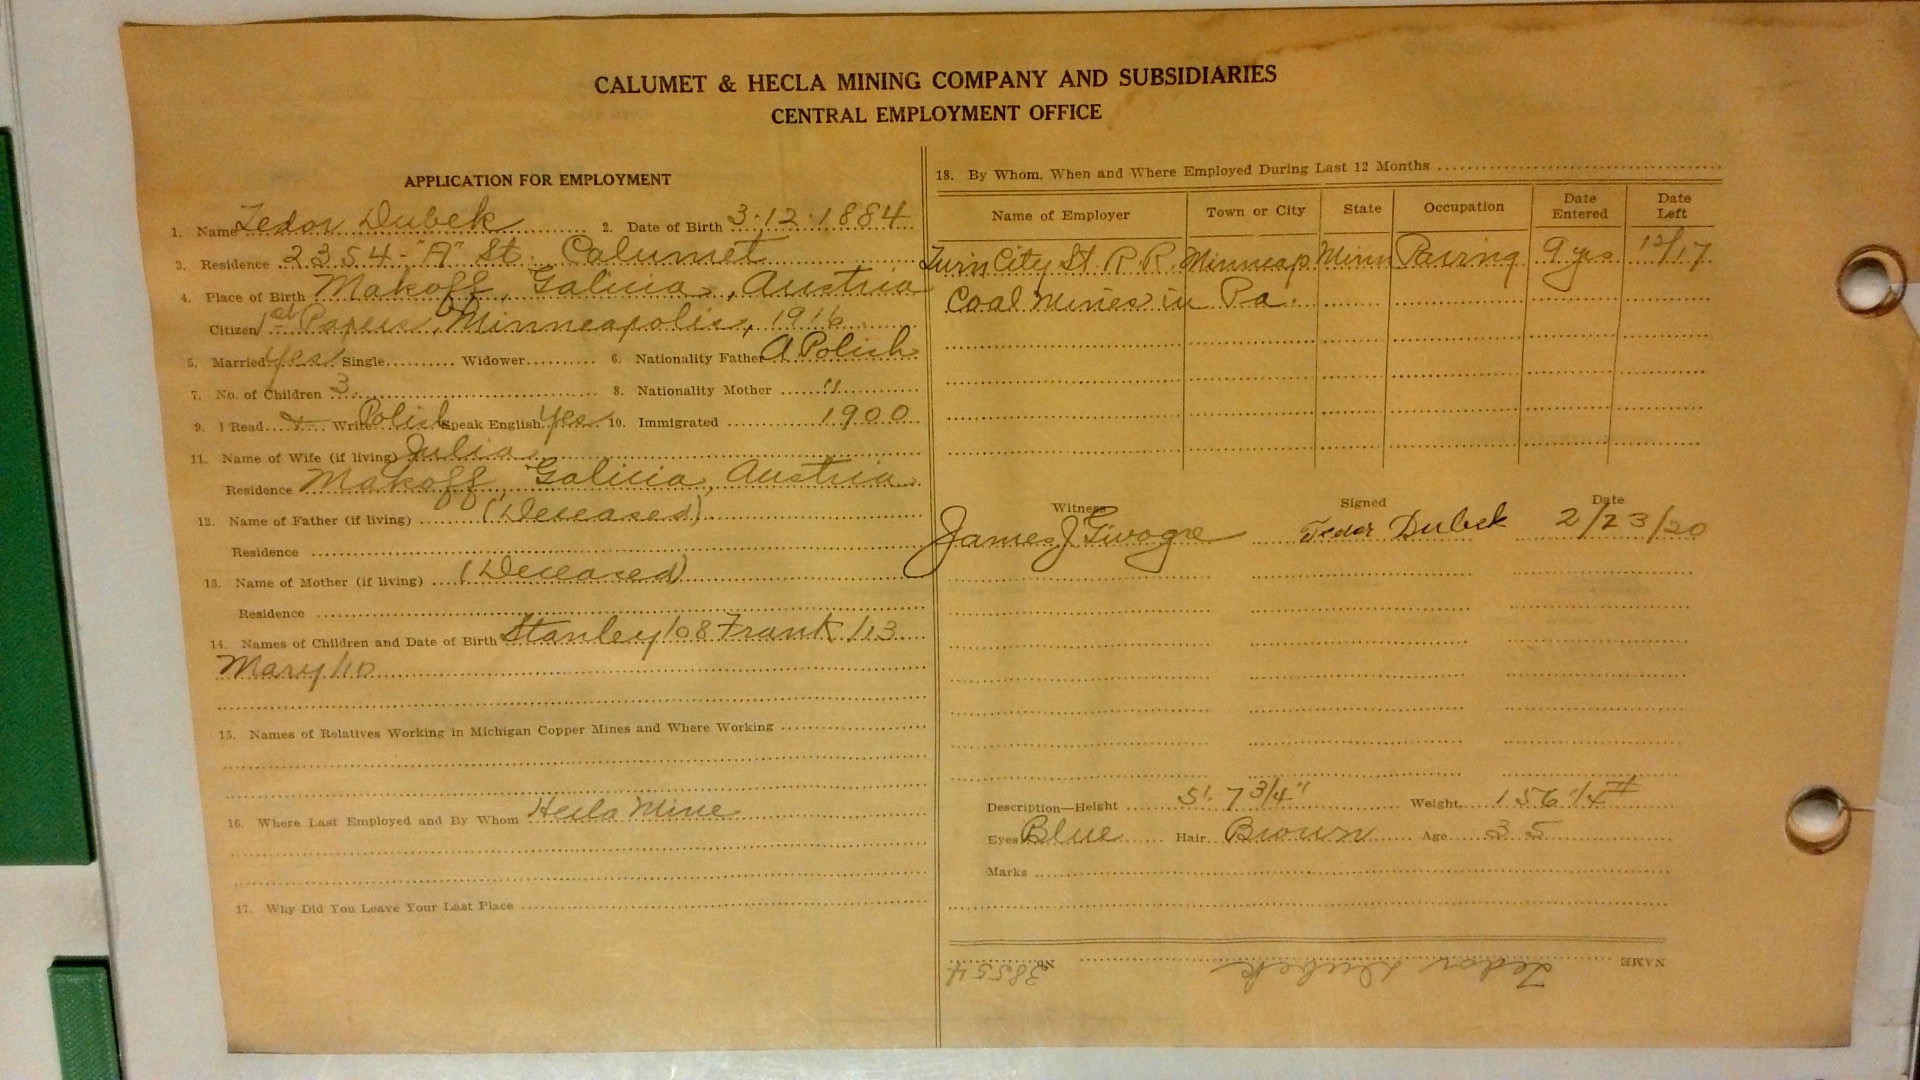 CALUMET & HECLA MINING COMPANY AND SUBSIDIARIES
CENTRAL EMPLOYMENT OFFICE
APPLICATION FOR EMPLOYMENT
1. Name Fedor Dubek 2. Date of Birth 3-12-1884
3. Residence 2354-"A" St. Calumet
4. Place of Birth Makoff, Galicia, Austria
Citizen 1st Papers, Minneapolis, 1916
5. Married Yes Single Widower 6. Nationality Father A Polish
7. No. of Children 3 8. Nationality Mother "
9. I Read & Write Polish Speak English Yes 10. Immigrated 1900
11. Name of Wife (if living) Julia
Residence Makoff, Galicia, Austria
12. Name of Father (if living) (Deceased)
Residence
13. Name of Mother (if living) (Deceased)
Residence
14. Names of Children and Date of Birth Stanley/08 Frank/13
Mary/10
15. Names of Relatives Working in Michigan Copper Mines and Where Working
16. Where Last Employed and By Whom Hecla Mine
17. Why Did You Leave Your Last Place
18. By Whom, When and Where Employed During Last 12 Months
Name of Employer Town or City State Occupation Date Entered Date Left
Twin City St R R. Minneap Minn Paving 9 yrs 12/17
Coal Mines in Pa.
Witness Signed Date
James J Fedor Dubek 2/23/20
Description—Height 5'. 7 3/4" Weight 156 1/4 #
Eyes Blue Hair Brown Age 35
Marks
NAME Fedor Dubek No. 38554